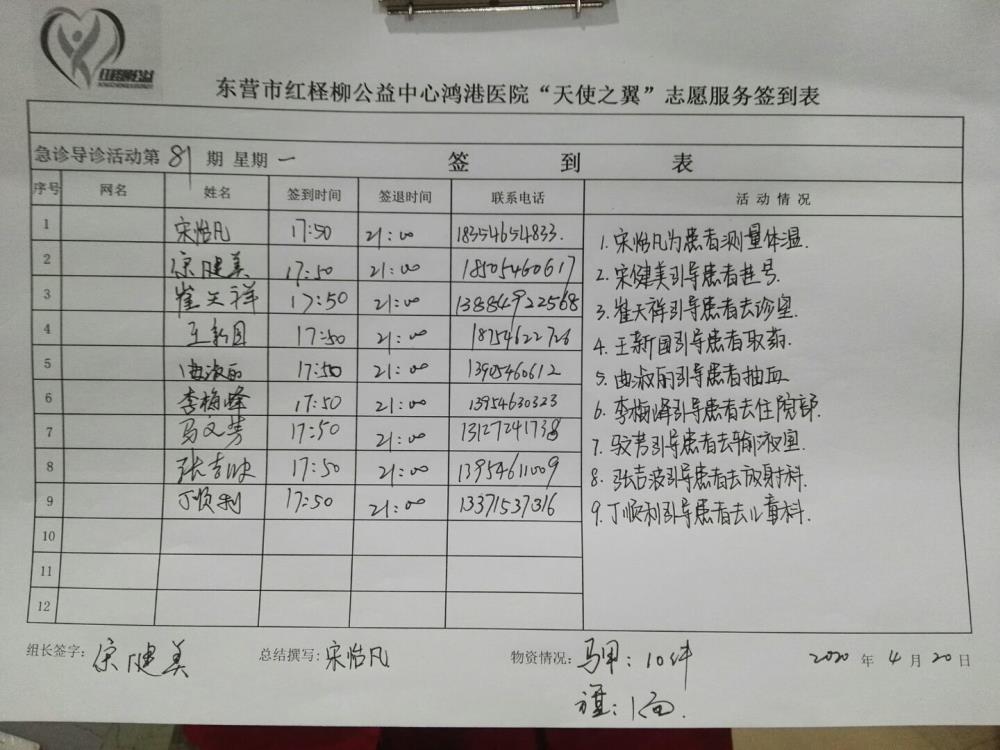 红柽柳公益
东营市红柽柳公益中心鸿港医院“天使之翼”志愿服务签到表
急诊导诊活动第 81 期 星期 一 签 到 表
序号 网名 姓名 签到时间 签退时间 联系电话 活动情况
1 宋怡凡 17:50 21:00 18354654833. 1.宋怡凡为患者测量体温.
2 宋健美 17:50 21:00 18505460617 2.宋健美引导患者挂号
3 崔天祥 17:50 21:00 13884922568 3.崔天祥引导患者去诊室.
4 王新国 17:50 21:00 18754622726 4.王新国引导患者取药.
5 曲淑丽 17:50 21:00 13905460612 5.曲淑丽引导患者抽血
6 李梅峰 17:50 21:00 13954630323 6.李梅峰引导患者去住院部.
7 马文芳 17:50 21:00 13127241738 7.马文芳引导患者去输液室
8 张吉波 17:50 21:00 13954611009 8.张吉波引导患者去放射科.
9 丁顺利 17:50 21:00 13371537316 9.丁顺利引导患者去儿童科.
10
11
12
组长签字: 宋健美 总结撰写: 宋怡凡 物资情况: 马甲:10件 2020 年 4 月 20 日
旗:1面.